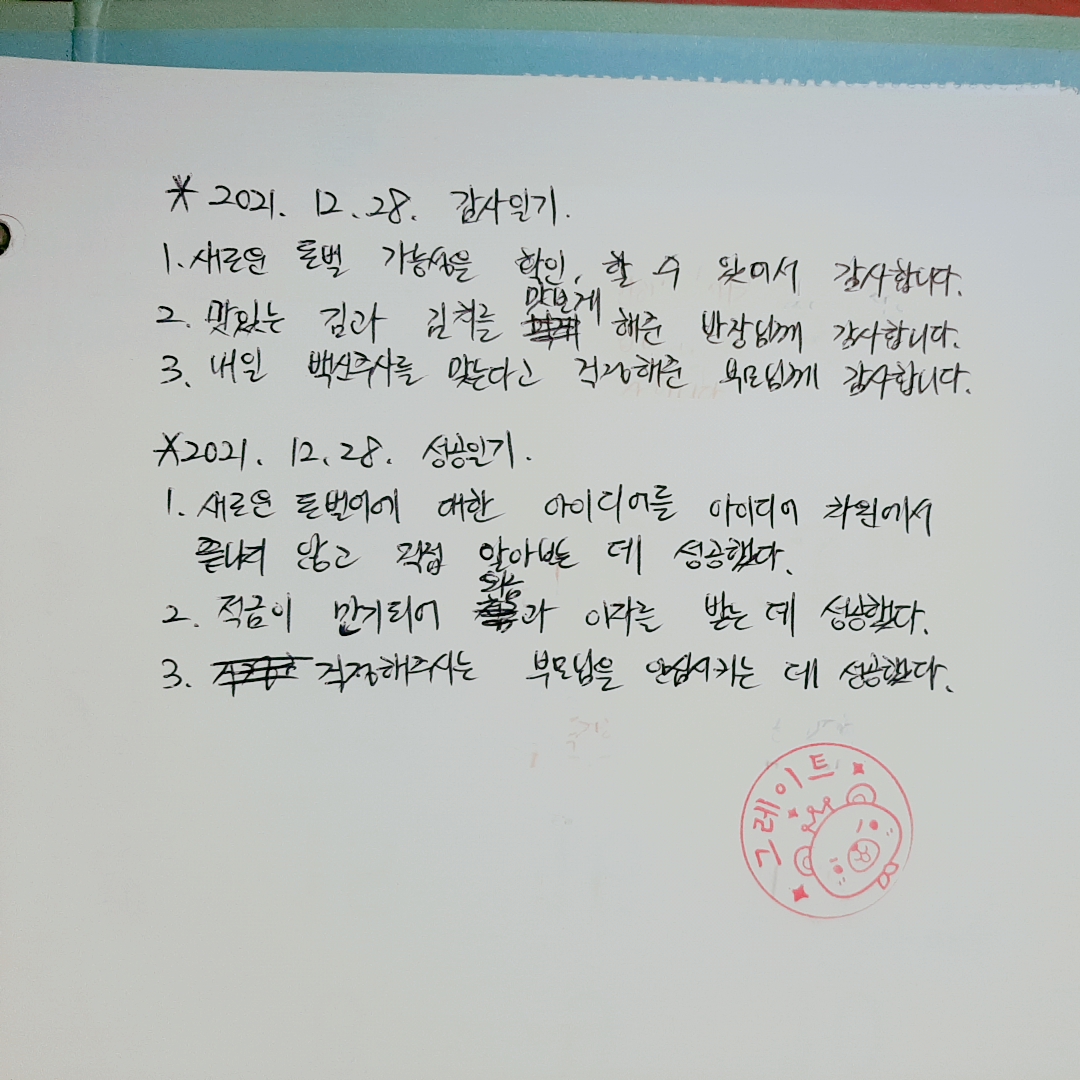 * 2021. 12. 28. 감사일기.
1. 새로운 돈벌 가능성을 확인, 할 수 있어서 감사합니다.
2. 맛있는 김과 김치를 맛보게 해준 반장님께 감사합니다.
3. 내일 백신주사를 맞는다고 걱정해준 부모님께 감사합니다.
* 2021. 12. 28. 성공일기.
1. 새로운 돈벌이에 대한 아이디어를 아이디어 차원에서
끝나지 않고 직접 알아보는 데 성공했다.
2. 적금이 만기되어 과 이자를 받는 데 성공했다.
3. 걱정해주시는 부모님을 안심시키는 데 성공했다.
그레이트